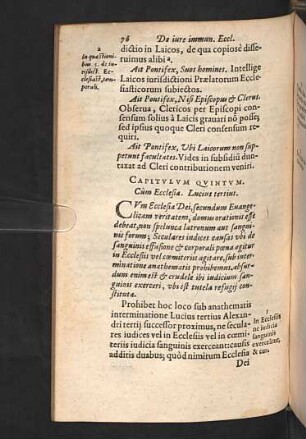 76 De iure immun. Eccl.
a
In quæstioni
bus 5. de iu
risdict. Ec
clesiast., tem
porali.
dictio in Laicos, de qua copiosè disse
ruimus alibi ᵃ.
Ait Pontifex, Suos homines. Intellige
Laicos iurisdictioni Prælatorum Eccle
siasticorum subiectos.
Ait Pontifex, Nisi Episcopus & Clerus.
Obserua, Clericos per Episcopi con
sensum solius à Laicis grauari nõ posse;
sed ipsius quoque Cleri consensum re
quiri.
Ait Pontifex, Vbi Laicorum non sup
petunt facultates. Vides in subsidiũ dun
taxat ad Cleri contributionem veniri.
CAPITVLVM QVINTVM.
Cùm Ecclesia. Lucius tertius.
CVm Ecclesia Dei, secundum Euange-
licam veritatem, domus orationis esse
debeat, non spelunca latronum aut sangui
nis forum; Seculares iudices causas vbi de
sanguinis effusione & corporali pœna agitur
in Ecclesiis vel cœmiteriis agitare, sub inter
minatione anathematis prohibemus, absur
dum enim est & crudele ibi iudicium sangui
nis exerceri, vbi est tutela refugij con
stituta.
Prohibet hoc loco sub anathematis
interminatione Lucius tertius Alexan
dri tertij successor proximus, ne secula
res iudices vel in Ecclesiis vel in cœmi
teriis iudicia sanguinis exerceant: causis
additis duabus; quòd nimirum Ecclesia
In Ecclesiis
ne iudicia
sanguinis
exerceantur,
& cur.
Dei